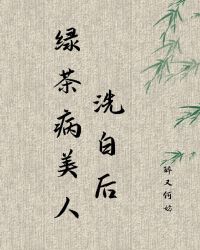 绿茶病美人
洗白后
醉又何妨